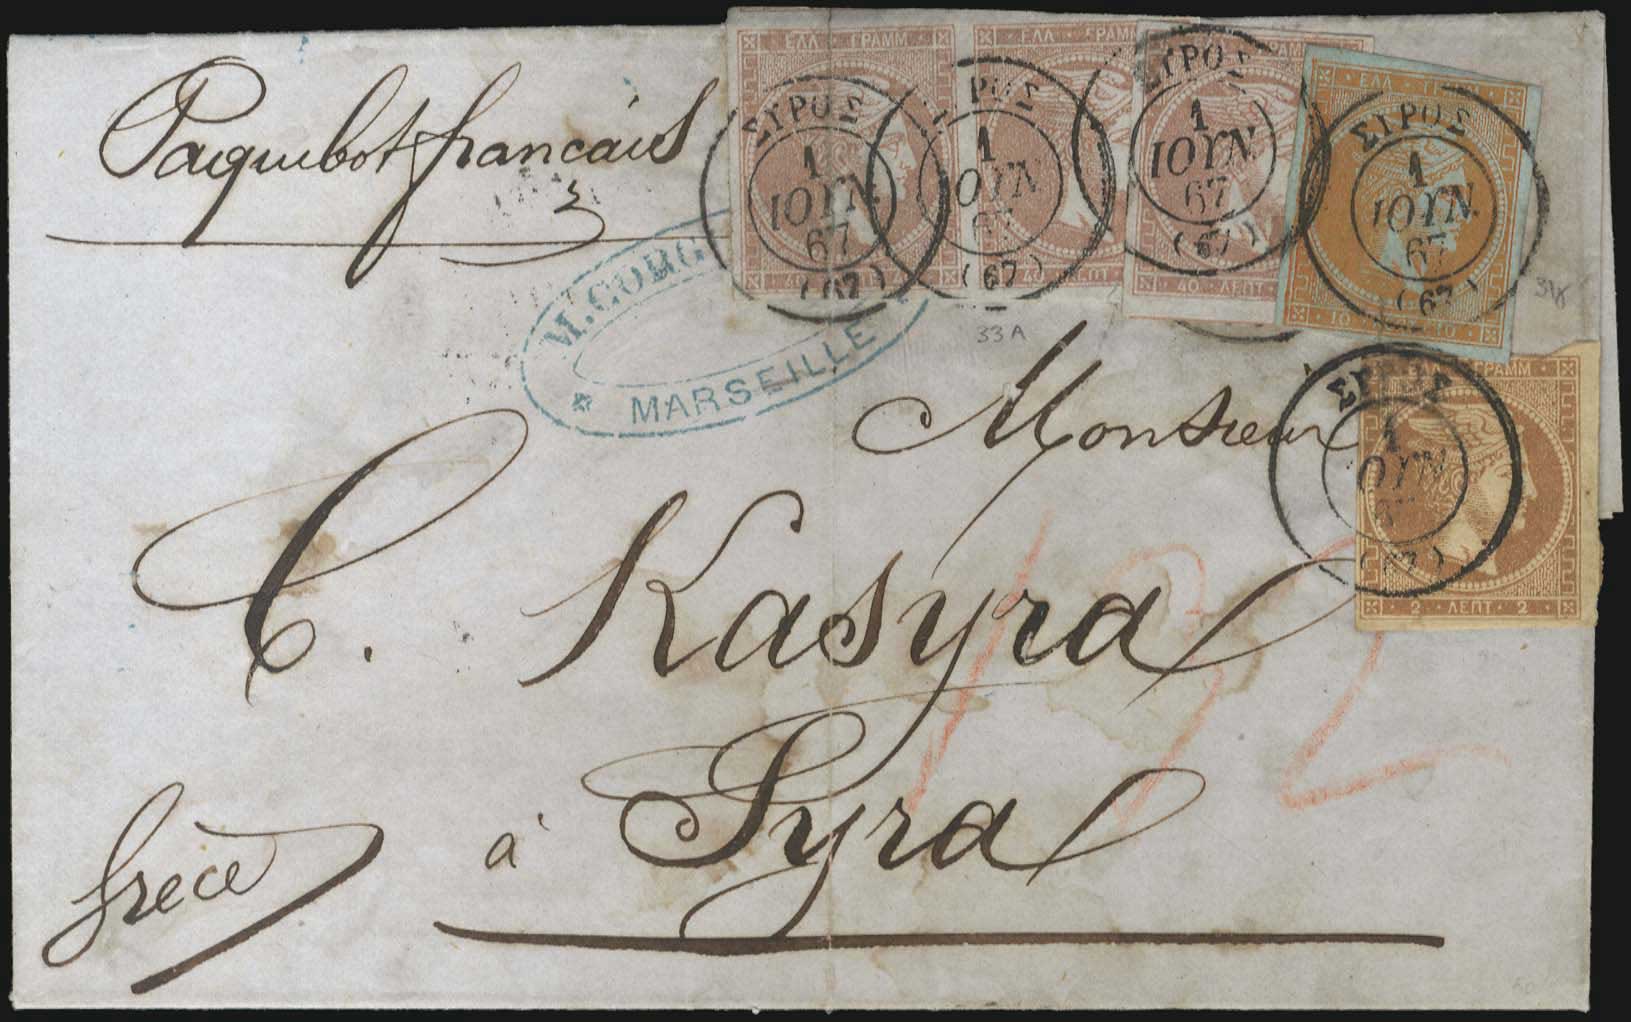 Paquebot français
ΕΛΛ ΓΡΑΜΜ
ΕΛΛ ΓΡΑΜΜ
ΣΥΡΟΣ
1
ΙΟΥΝ
67
(67)
ΡΟΣ
1
ΟΥΝ
67
(67)
ΣΥΡΟΣ
1
ΙΟΥΝ
67
(67)
40 ΛΕΠΤ
ΕΛΛ
ΣΥΡΟΣ
1
ΙΟΥΝ
67
(67)
10 10
33A
M. CORG
MARSEILLE
Monsieur
ΓΡΑΜΜ
ΣΥΡΟΣ
1
ΙΟΥΝ
67
(67)
2 ΛΕΠΤ 2
C. Kasyra
132
à Syra
Grèce